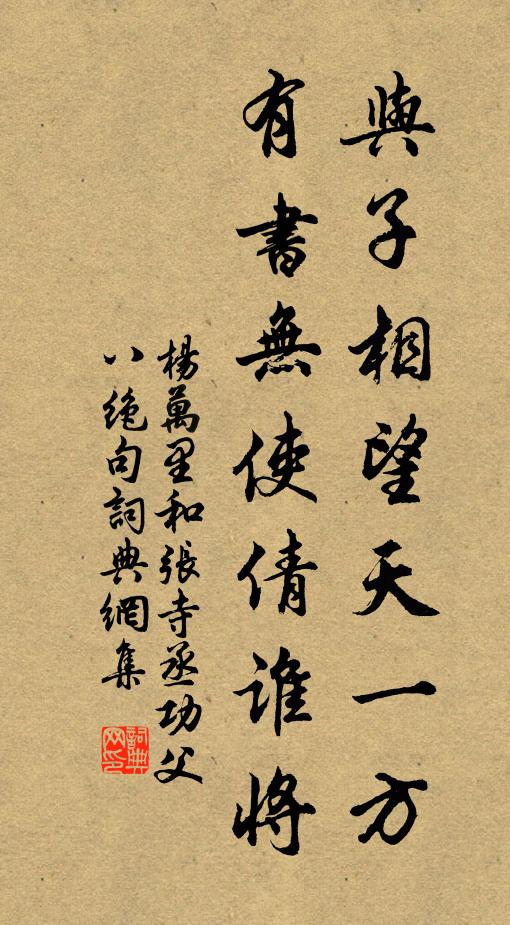 與子相望天一方
有書無使倩誰將
楊萬里和張寺丞功父
八絶句詞典網集
詞典
网印